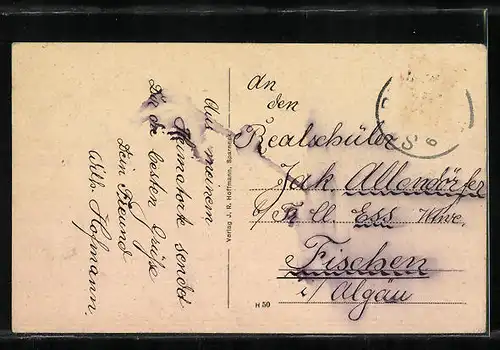 Aus meinem
Heimatort sendet
Dir die besten Grüße
Dein Freund
Wilh. Hofmann.
Verlag J. R. Hoffmann,
An
den
Realschüler
Jak. Allendörfer
b/ Fr. Ess Wwe.
Fischen
i/ Algäu
H 50